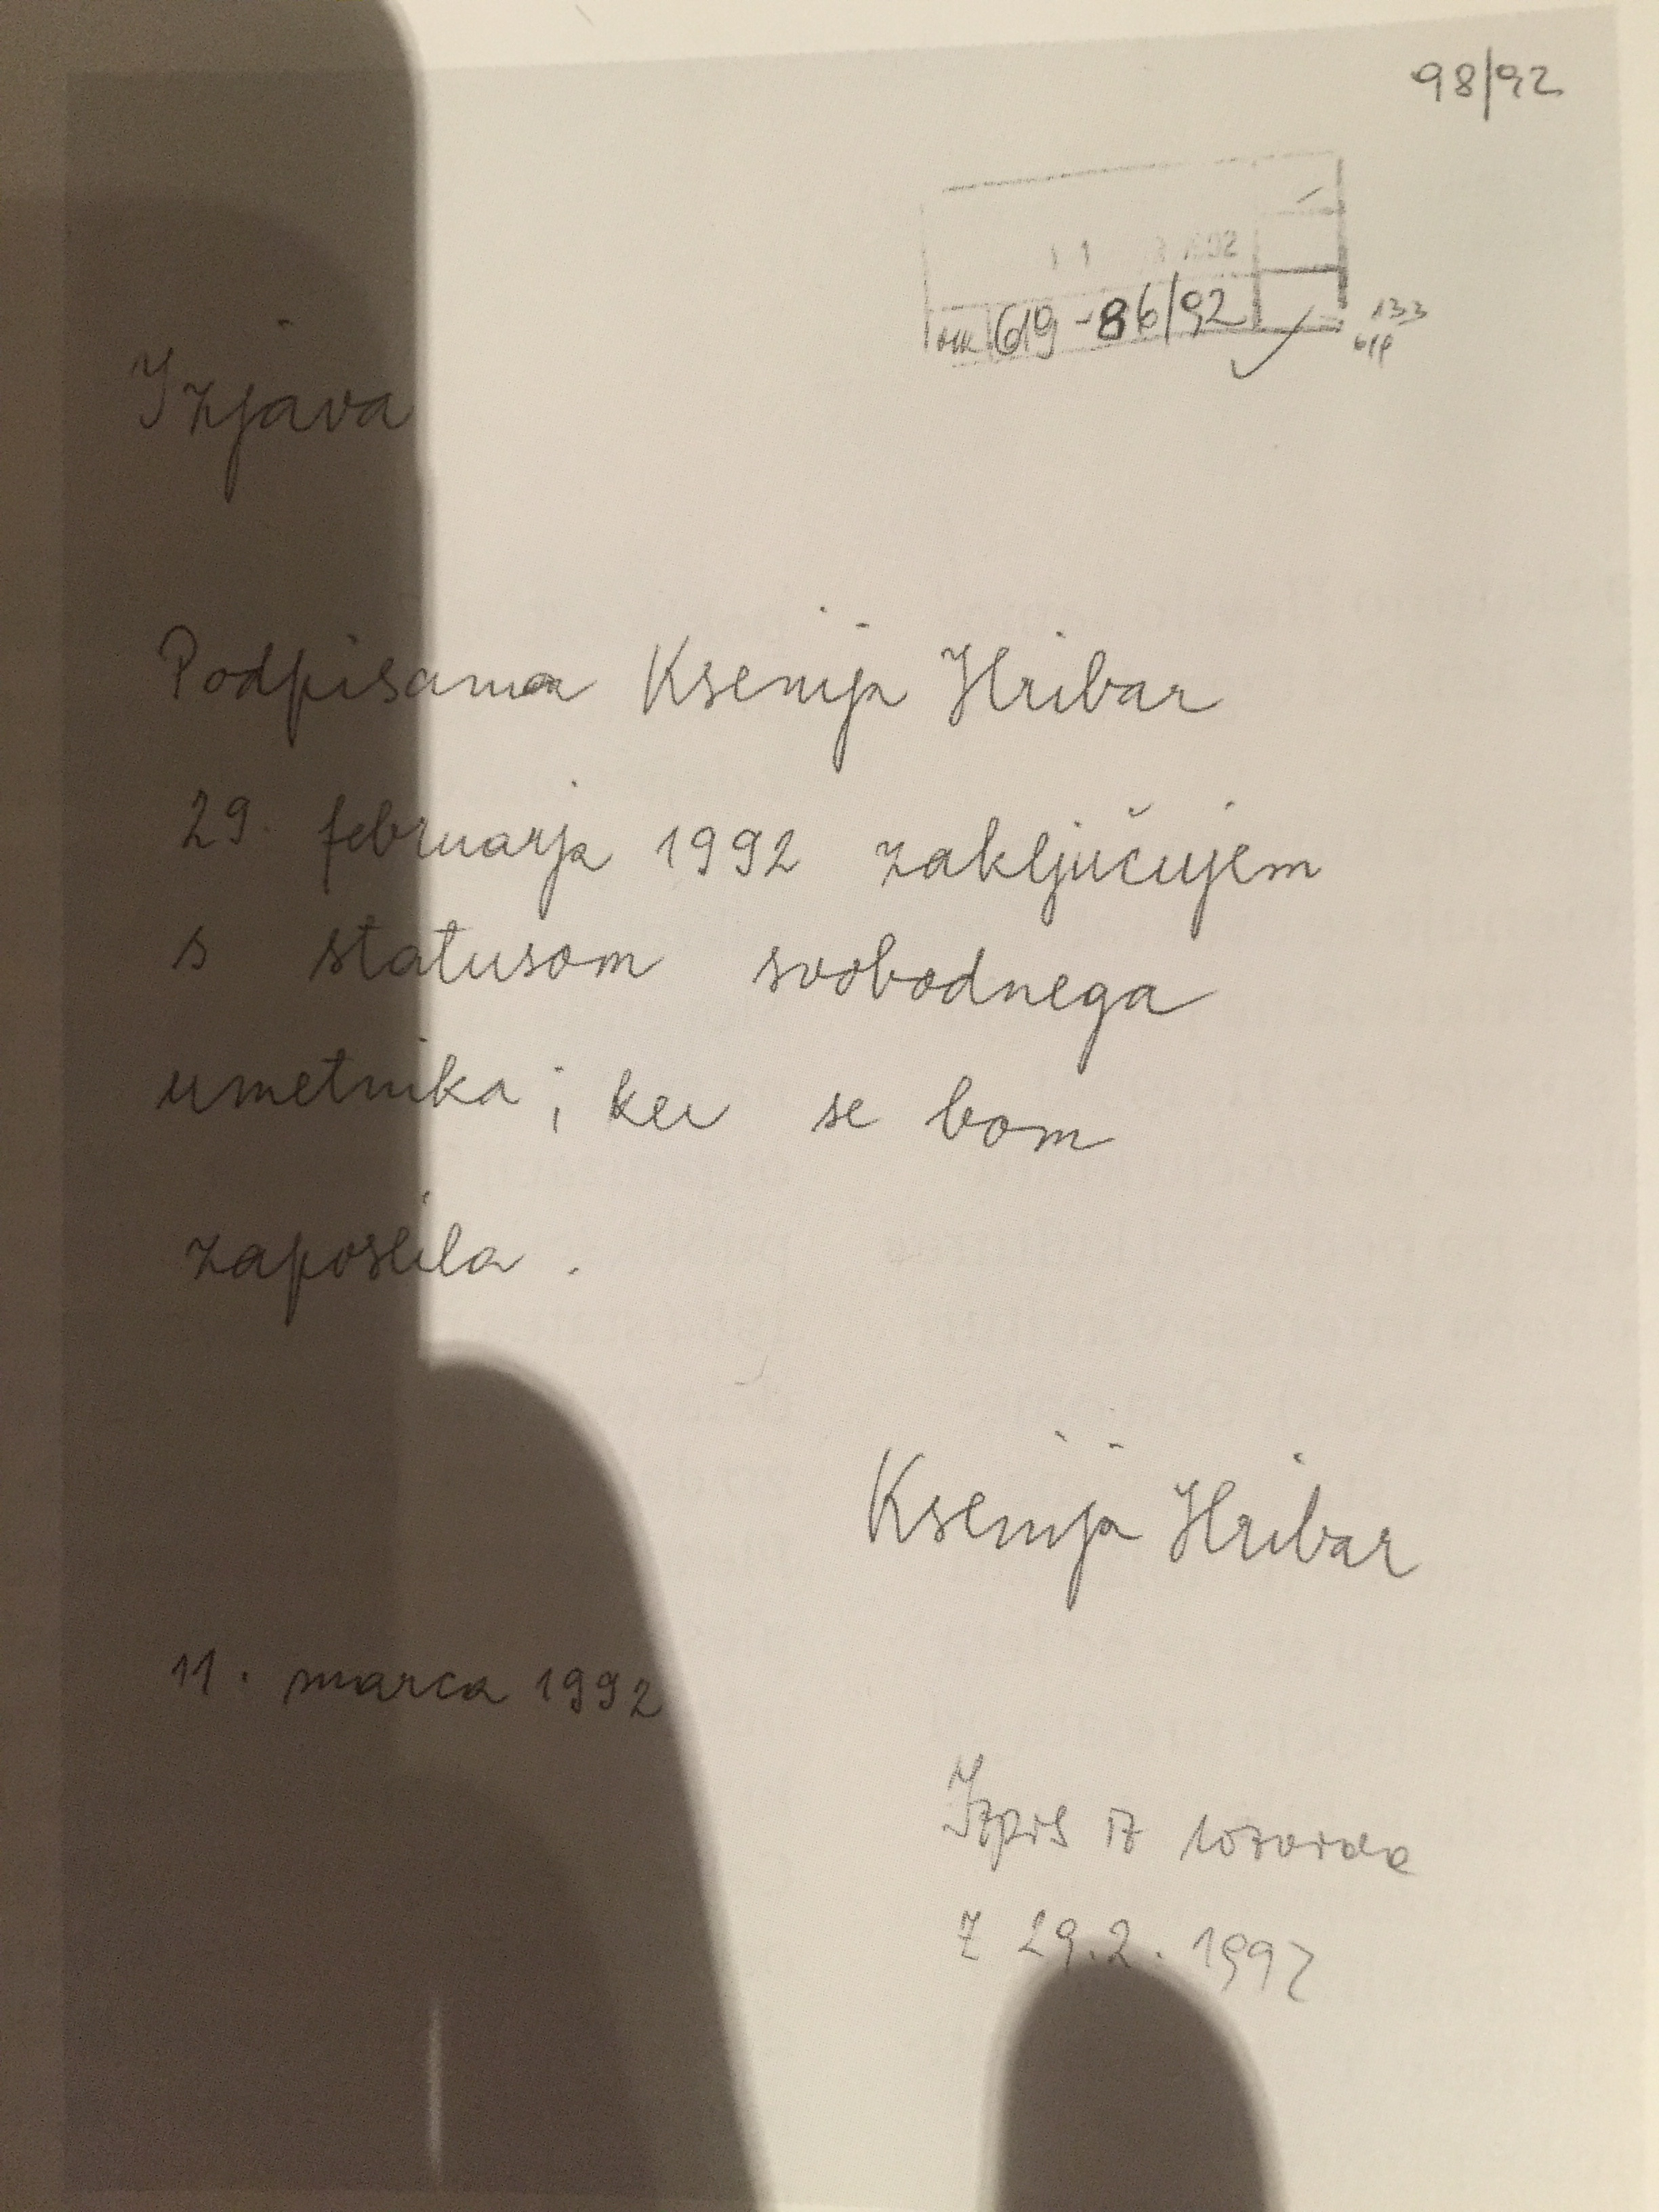 98/92
619-86/92
133
619
Izjava
Podpisana Ksenija Hribar
29. februarja 1992 zaključujem
s statusom svobodnega
umetnika; ker se bom
zaposlila.
Ksenija Hribar
11. marca 1992
Izpis iz razvida
z 29.2.1992